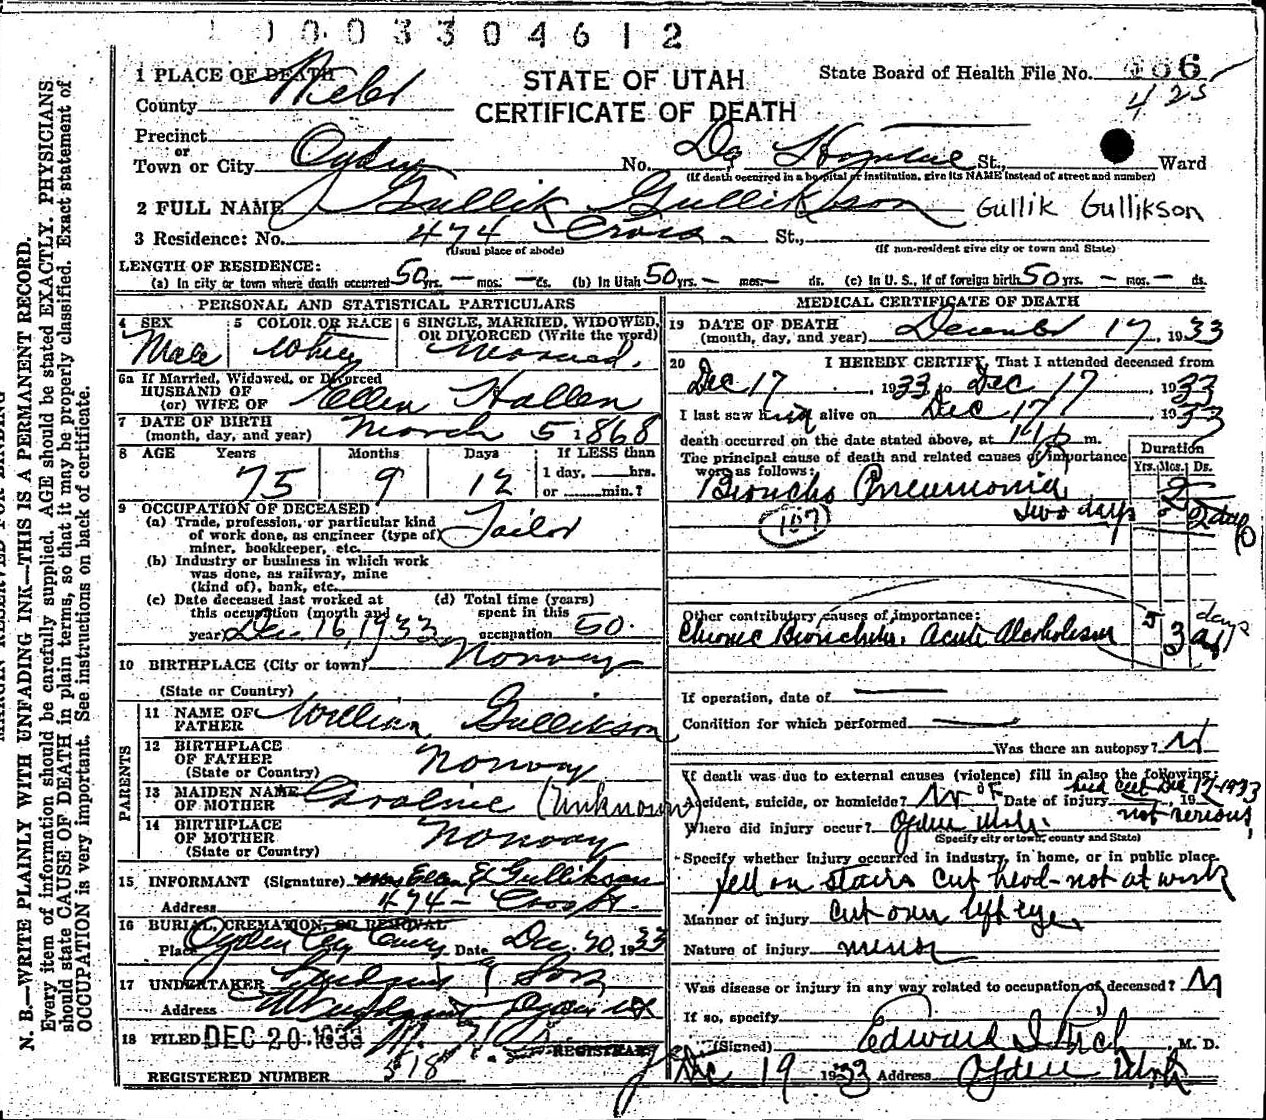 1 0 0 3 3 0 4 6 1 2
1 PLACE OF DEATH
STATE OF UTAH
CERTIFICATE OF DEATH
State Board of Health File No. 6
425
County Weber
Precinct
or
Town or City Ogden No. Dee Hospital St., Ward
(If death occurred in a hospital or institution, give its NAME instead of street and number)
2 FULL NAME Gullik Gullikson Gullik Gullikson
3 Residence: No. 474 Cross St.,
(Usual place of abode) (If non-resident give city or town and State)
LENGTH OF RESIDENCE:
(a) In city or town where death occurred 50 yrs. — mos. — ds. (b) In Utah 50 yrs. — mos. — ds. (c) In U. S., if of foreign birth 50 yrs. — mos. — ds.
PERSONAL AND STATISTICAL PARTICULARS
4 SEX 5 COLOR OR RACE 6 SINGLE, MARRIED, WIDOWED, OR DIVORCED (Write the word)
Male White Married.
6a If Married, Widowed, or Divorced
HUSBAND OF
(or) WIFE OF Ellen Hallen
7 DATE OF BIRTH
(month, day, and year) March 5 1868
8 AGE Years Months Days If LESS than
1 day, hrs.
75 9 12 or min.?
9 OCCUPATION OF DECEASED
(a) Trade, profession, or particular kind
of work done, as engineer (type of) Tailor
miner, bookkeeper, etc.
(b) Industry or business in which work
was done, as railway, mine
(kind of), bank, etc.
(c) Date deceased last worked at (d) Total time (years)
this occupation (month and spent in this
year) Dec 16, 1933 occupation 50.
10 BIRTHPLACE (City or town) Norway
(State or Country)
PARENTS
11 NAME OF
FATHER William Gullikson
12 BIRTHPLACE
OF FATHER Norway
(State or Country)
13 MAIDEN NAME
OF MOTHER Caroline (Unknown)
14 BIRTHPLACE
OF MOTHER Norway
(State or Country)
15 INFORMANT (Signature) Mrs Ellen E Gullikson
Address 474 - Cross St.
16 BURIAL, CREMATION, OR REMOVAL
Place Ogden City Cemy Date Dec. 20, 1933
17 UNDERTAKER & Son
Address Ogden
18 FILED DEC 20 1933
REGISTRAR
REGISTERED NUMBER 518
MEDICAL CERTIFICATE OF DEATH
19 DATE OF DEATH
(month, day, and year) December 17, 1933
20 I HEREBY CERTIFY, That I attended deceased from
Dec 17, 1933 to Dec 17 1933
I last saw him alive on Dec 17 1933
death occurred on the date stated above, at m.
The principal cause of death and related causes of importance
were as follows:
Duration
Yrs. Mos. Ds.
Broncho Pneumonia
two days 2 days
107
Other contributory causes of importance:
Chronic Bronchitis. Acute Alcoholism 5 3 days
If operation, date of
Condition for which performed
Was there an autopsy? N
If death was due to external causes (violence) fill in also the following:
Accident, suicide, or homicide? No Date of injury , 19
had cut Dec 17-1933
not serious
Where did injury occur? Ogden Utah.
(Specify city or town, county and State)
Specify whether injury occurred in industry, in home, or in public place.
fell on stairs cut head - not at work
Manner of injury cut over left eye
Nature of injury minor
Was disease or injury in any way related to occupation of deceased? N
If so, specify
(Signed) Edward I Rich, M. D.
Dec 19 1933 Address Ogden Utah
MARGIN RESERVED FOR BINDING
N. B.—WRITE PLAINLY WITH UNFADING INK—THIS IS A PERMANENT RECORD.
Every item of information should be carefully supplied. AGE should be stated EXACTLY. PHYSICIANS
should state CAUSE OF DEATH in plain terms, so that it may be properly classified. Exact statement of
OCCUPATION is very important. See instructions on back of certificate.